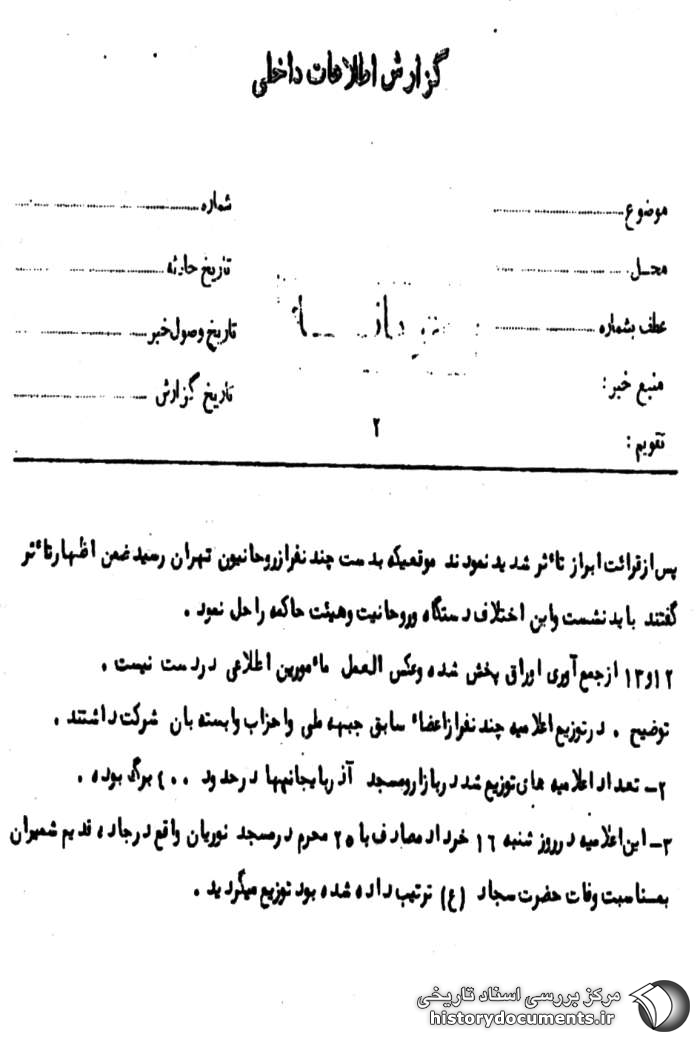 گزارش اطلاعات داخلی
موضوع
شماره
محل
تاریخ حادثه
عطف بشماره
تاریخ وصول خبر
منبع خبر :
تاریخ گزارش
تقویم :
۲
پس از قرائت ابراز تاٴثر شدید نمودند موقعیکه بدست چند نفر از روحانیون تهران رسید ضمن اظهار تاٴثر
گفتند باید نشست و این اختلاف دستگاه و روحانیت و هیئت حاکمه را حل نمود .
۱۲و۱۳ از جمع آوری اوراق پخش شده و عکس العمل ماٴمورین اطلاعی در دست نیست .
توضیح . در توزیع اعلامیه چند نفر از اعضاٴ سابق جبهه ملی و احزاب وابسته بان شرکت داشتند .
۲- تعداد اعلامیه های توزیع شد در بازار و مسجد آذربایجانیها در حدود ۴۰۰ برگ بوده .
۳- این اعلامیه در روز شنبه ۱۶ خرداد مصادف با ۲۵ محرم در مسجد نوریان واقع در جاده قدیم شمیران
بمناسبت وفات حضرت سجاد (ع) ترتیب داده شده بود توزیع میگردید .
مرکز بررسی اسناد تاریخی
historydocuments.ir